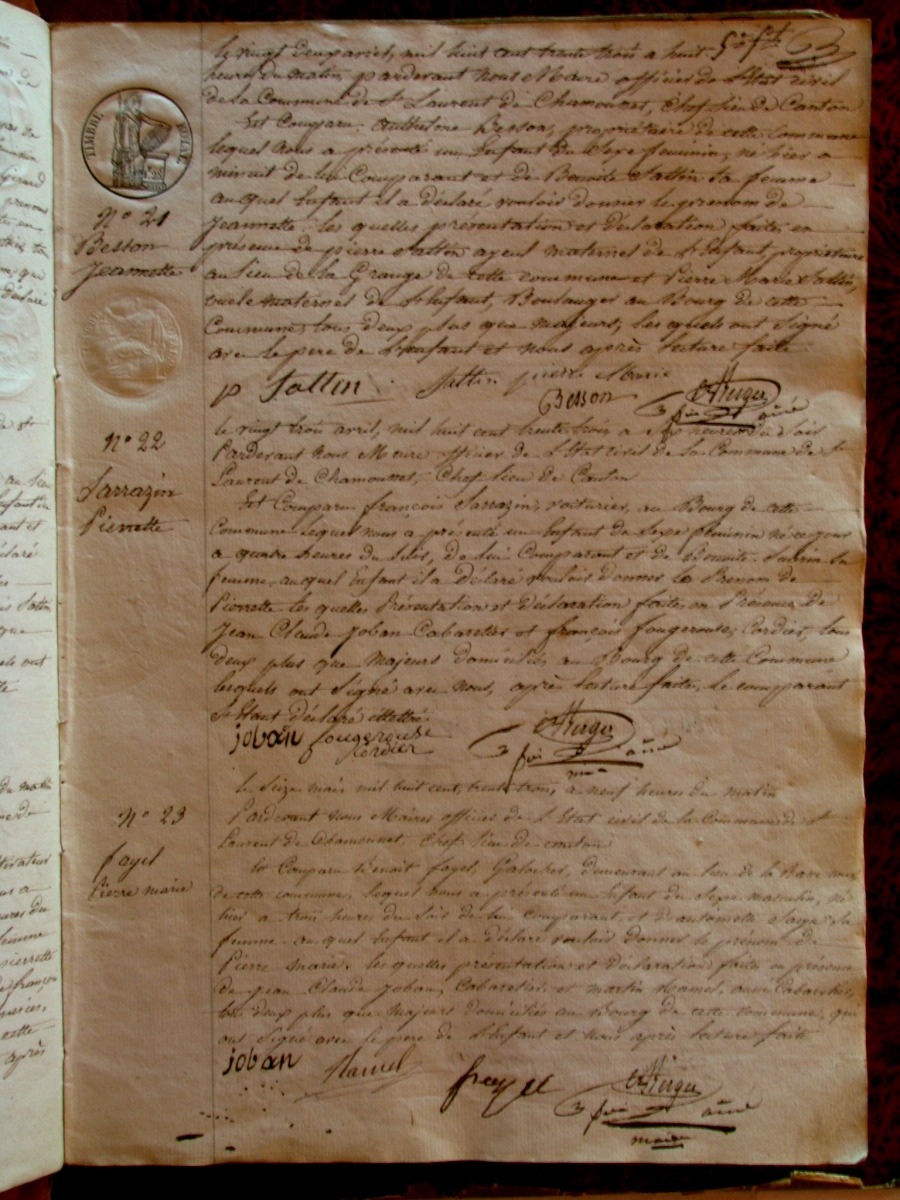 le vingt deux avril, mil huit cent trente trois a huit
heures du matin, pardevant nous Maire officier de l'Etat civil
de la Commune de St Laurent de Chamousset, Chef lieu de Canton
Est Comparu Anthelme Besson, propriétaire de cette commune
lequel nous a présenté un Enfant du Sexe feminin, né hier a
minuit de lui Comparant et de Benoite Sattin sa femme
auquel Enfant il a déclaré vouloir donner le prenom de
Jeannette. les quelles présentation et déclaration faites en
présence de pierre Sattin ayeul maternel de l'Enfant, propriétaire
au lieu de la Grange de cette commune et Pierre Marie Sattin,
oncle maternel de l'Enfant, Boulanger au Bourg de cette
Commune, tous deux plus que majeurs, les quels ont Signé
avec le pere de l'Enfant et nous après lecture faite
TIMBRE ROYAL
N° 21
Besson
Jeannette
p Sattin Sattin pierre Marie
Besson
ainé
N° 22
Sarrazin
Pierrette
le vingt trois avril, mil huit cent trente trois a six heures du Soir
Pardevant nous Maire officier de l'Etat civil de la Commune de St
Laurent de Chamousset, Chef lieu de Canton
Est Comparu françois Sarrazin, voiturier, au Bourg de cette
Commune lequel nous a présenté un Enfant du Sexe feminin né ce jour
a quatre heures du Soir, de lui Comparant et de Benoite sa
femme, auquel Enfant il a Déclaré vouloir donner le Prenom de
Pierrette les quelles Présentation et Déclaration faites en Présence de
Jean Claude Joban Cabaretier et françois fougerouse, Cordier, tous
deux plus que Majeurs domiciliés au Bourg de cette Commune
lesquels ont Signé avec nous, après lecture faite, le comparant
déclaré illettré
joban fougerouse
Cordier
ainé
N° 23
fayel
Pierre marie
le Seize mai mil huit cent, trente trois, a neuf heures du matin
Pardevant nous Maire officier de l'Etat civil de la Commune de St
Laurent de Chamousset, Chef lieu de canton
Est Comparu Benoit fayel, Galocher, demeurant au lieu de la
de cette commune, lequel nous a présenté un Enfant du Sexe masculin, né
hier a trois heures du Soir de lui Comparant, et d'antoinette sa
femme auquel Enfant il a déclaré vouloir donner le prénom de
Pierre marie. les quelles présentation et déclaration faites en présence
de Jean Claude Joban, Cabaretier et martin Hamel, aussi Cabaretier,
tous deux plus que Majeurs domiciliés au Bourg de cette commune, qui
ont Signé avec le pere de l'Enfant et nous après lecture faite
joban Hamel fayel
ainé
maire